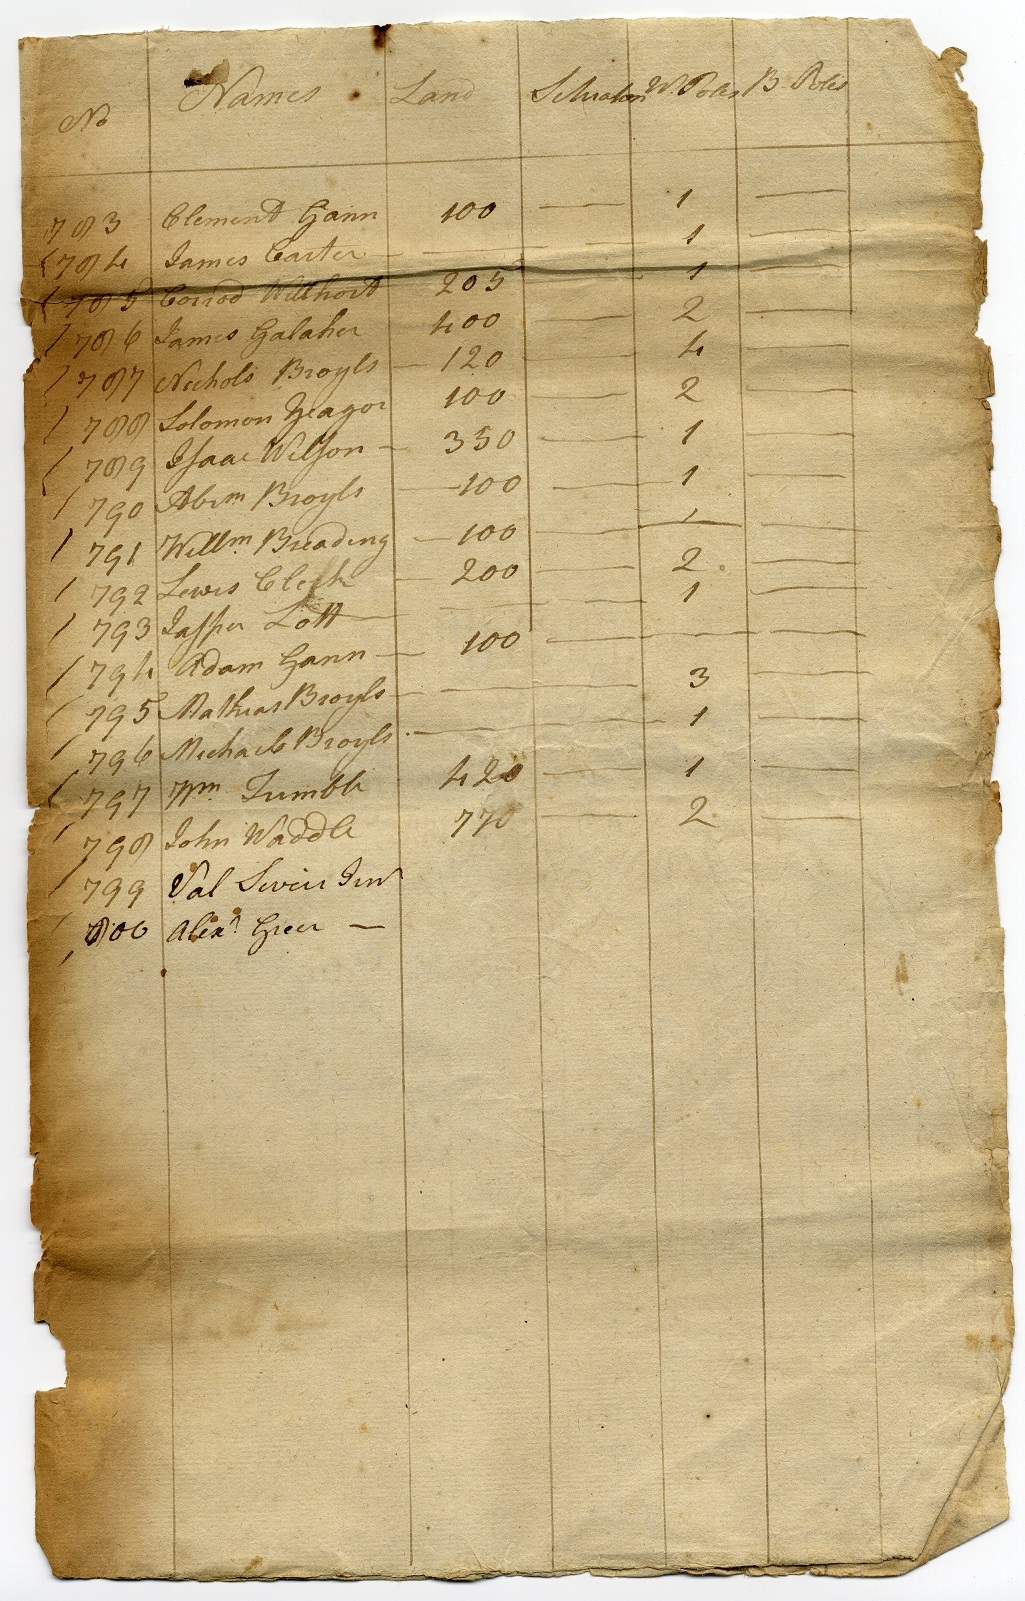 No Names Land Situation W. Poles B. Poles
783 Clement Gann 100 — 1 —
784 James Carter — — — 1 —
785 Corrod Willhort 205 — 1 —
786 James Galaher 400 — 2 —
787 Nichols Broyls — 120 — 4 —
788 Solomon Yeagor 100 — 2 —
789 Isaac Wilson — 350 — 1 —
790 Abrm Broyls — 100 — 1 —
791 Willm Breading — 100 — 1 —
792 Lewis Clerk — 200 — 2 —
793 Jasper Lott — — — 1 —
794 Adam Gann — 100 — — —
795 Mathias Broyls — — — 3 —
796 Michael Broyls — — — 1 —
797 Wm Tumble 420 — 1 —
798 John Waddle 770 — 2 —
799 Val Sevier Junr
800 Alexr Greer —